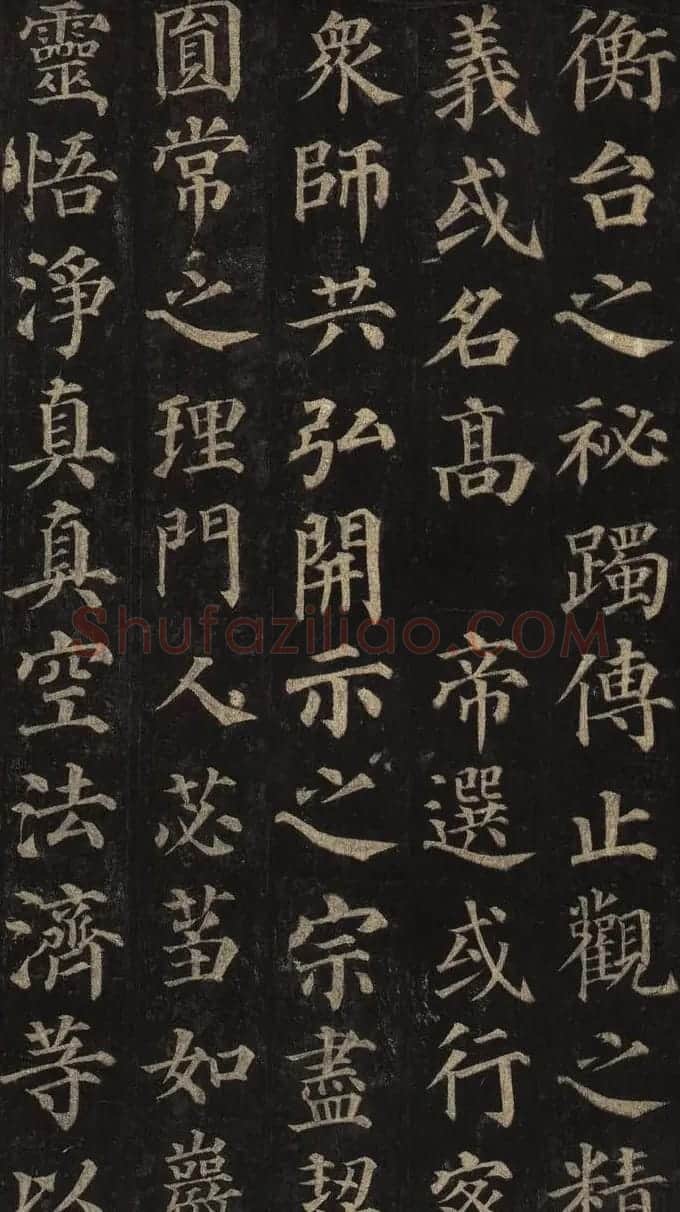 衡台之祕躅傳止觀之精
義或名高 帝選或行密
衆師共弘開示之宗盡契
圎常之理門人苾蒭如巖
靈悟淨真真空法濟等以
Shufaziliao.COM